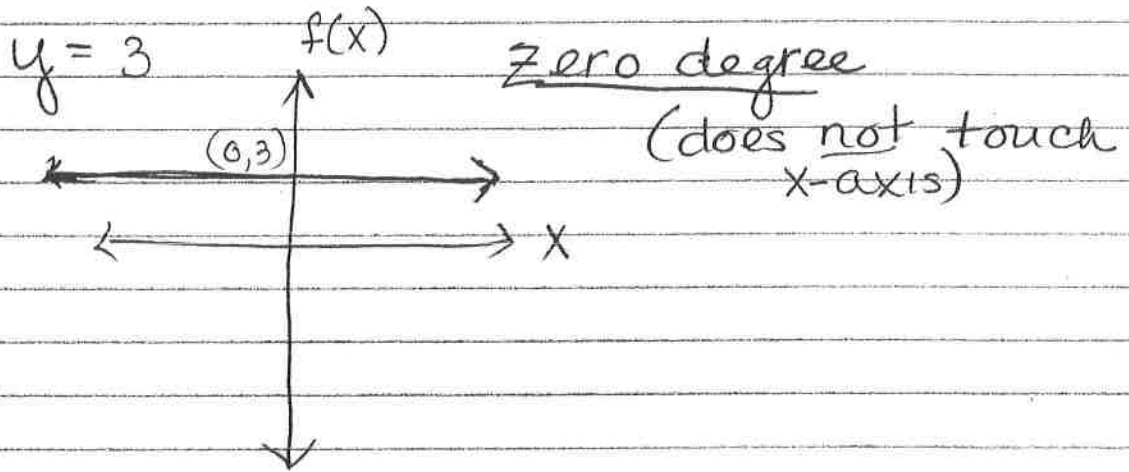 y = 3
f(x)
zero degree
(does not touch
x-axis)
(0,3)
x